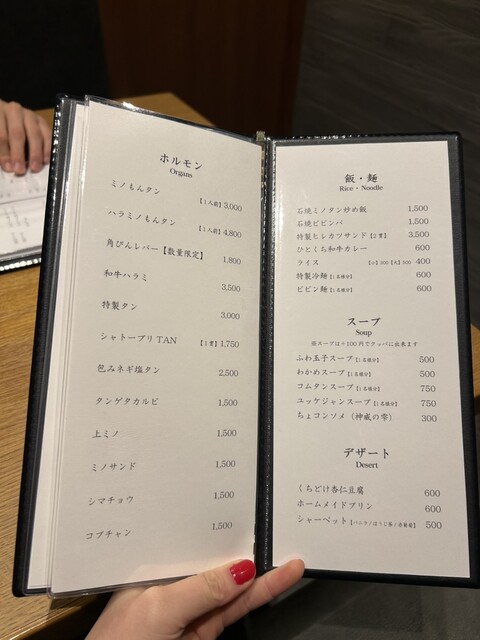 ホルモン
Organs
ミノもんタン 【1人前】3,000
ハラミノもんタン 【1人前】4,800
角ぴんレバー【数量限定】 1,800
和牛ハラミ 3,500
特製タン 3,000
シャトーブリTAN 【1貫】1,750
包みネギ塩タン 2,500
タンゲタカルビ 1,500
上ミノ 1,500
ミノサンド 1,500
シマチョウ 1,500
コプチャン 1,500
飯・麺
Rice・Noodle
石焼ミノタン炒め飯 1,500
石焼ビビンバ 1,500
特製ヒレカツサンド 3,500
ひとくち和牛カレー 600
ライス 【小】300【大】500 400
特製冷麺【1名様分】 600
ビビン麺【1名様分】 600
スープ
Soup
※スープは+100円でクッパに出来ます
ふわ玉子スープ【1名様分】 500
わかめスープ【1名様分】 500
コムタンスープ【1名様分】 750
ユッケジャンスープ【1名様分】 750
ちょコンソメ（神威の雫） 300
デザート
Desert
くちどけ杏仁豆腐 600
ホームメイドプリン 600
シャーベット 500